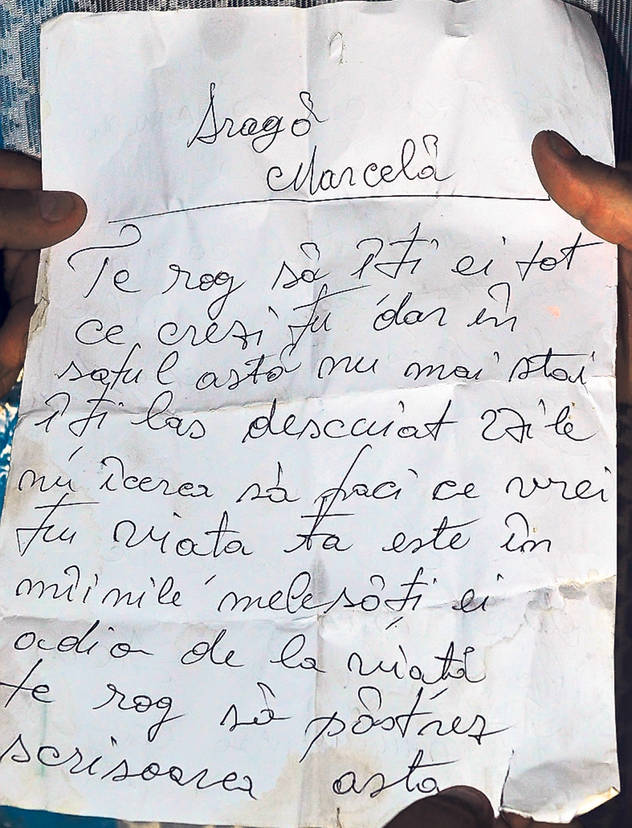 Dragă
Marcelă
Te rog să îți ei tot
ce crezi tu dar în
satul asta nu mai stai
îți las descuiat
nu îcerca să faci ce vrei
tu viata ta este în
mîinile mele să îți ei
adio de la viață
te rog să păstrez
scrisoarea asta